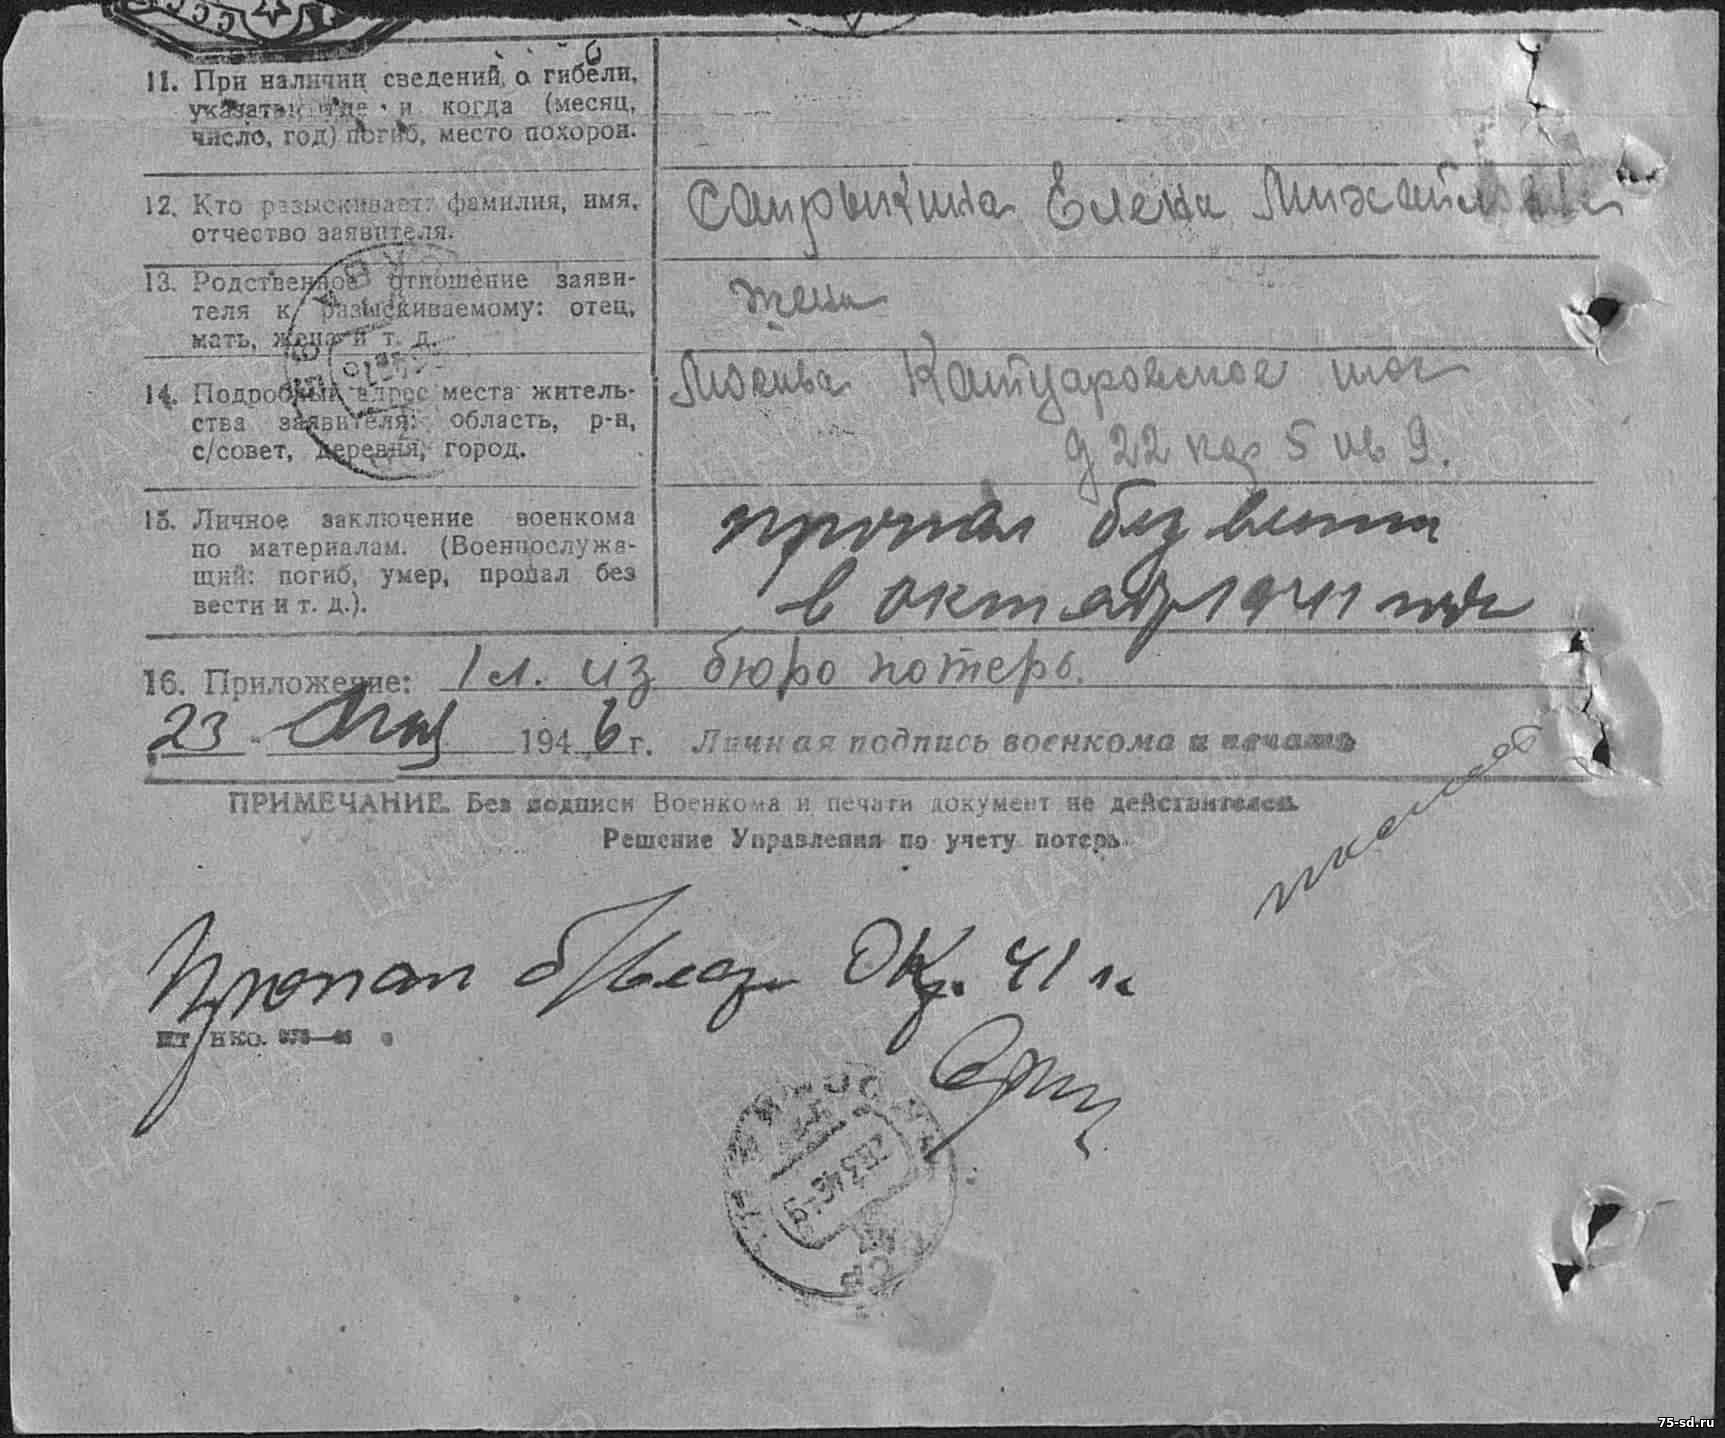 СССР
11. При наличии сведений о гибели,
указать где и когда (месяц,
число, год) погиб, место похорон.
12. Кто разыскивает: фамилия, имя,
отчество заявителя.
Сапрыкина Елена Михайловна
13. Родственное отношение заяви-
теля к разыскиваемому: отец,
мать, жена и т. д.
жена
14. Подробный адрес места житель-
ства заявителя: область, р-н,
с/совет, деревня, город.
Москва шос
д 22 кор 5 кв 9.
15. Личное заключение военкома
по материалам. (Военнослужа-
щий: погиб, умер, пропал без
вести и т. д.).
пропал без вести
в октябре 1941 года
16. Приложение: 1 л. из бюро потерь.
23 Мая 1946 г. Личная подпись военкома и печать
ПРИМЕЧАНИЕ. Без подписи Военкома и печати документ не действителен.
Решение Управления по учету потерь
Пропал б/вести Ок. 41 г.
НКО.
МОСКВА
ПАМЯТЬ
НАРОДА
ЦАМО РФ
75-sd.ru